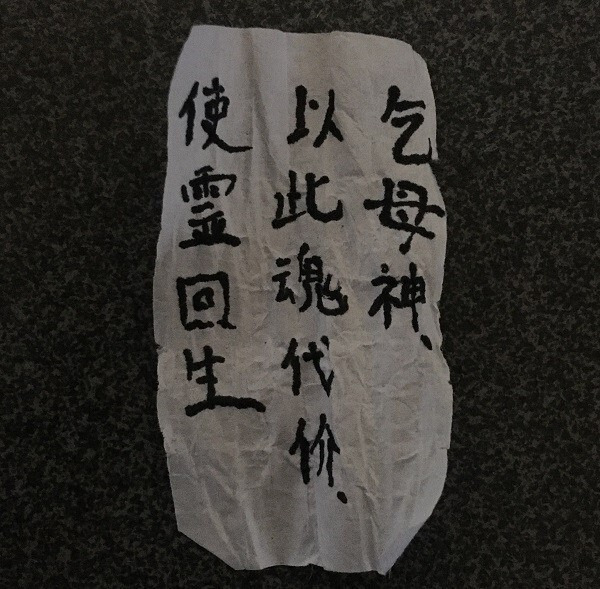 乞母神、
以此魂代价、
使霊回生